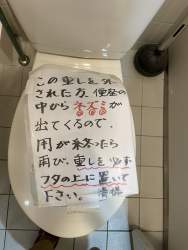 この重しを外
された方、便座の
中からネズミが
出てくるので、
用が終ったら
再び、重しを必ず
フタの上に置いて
下さい。